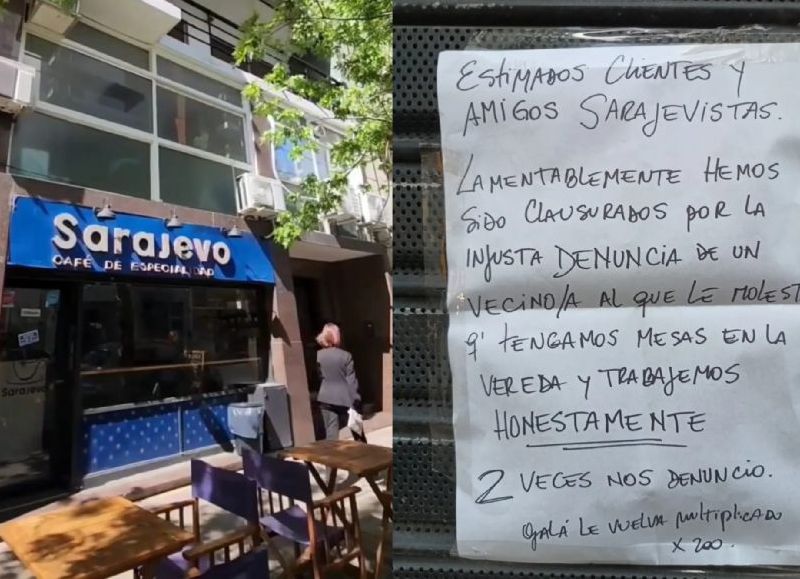 Sarajevo
CAFÉ DE ESPECIALIDAD
Sarajevo
ESTIMADOS CLIENTES Y
AMIGOS SARAJEVISTAS.
LAMENTABLEMENTE HEMOS
SIDO CLAUSURADOS POR LA
INJUSTA DENUNCIA DE UN
VECINO/A AL QUE LE MOLEST
q' TENGAMOS MESAS EN LA
VEREDA Y TRABAJEMOS
HONESTAMENTE
2 VECES NOS DENUNCIO.
OJALÁ LE VUELVA MULTIPLICADO
X 200.